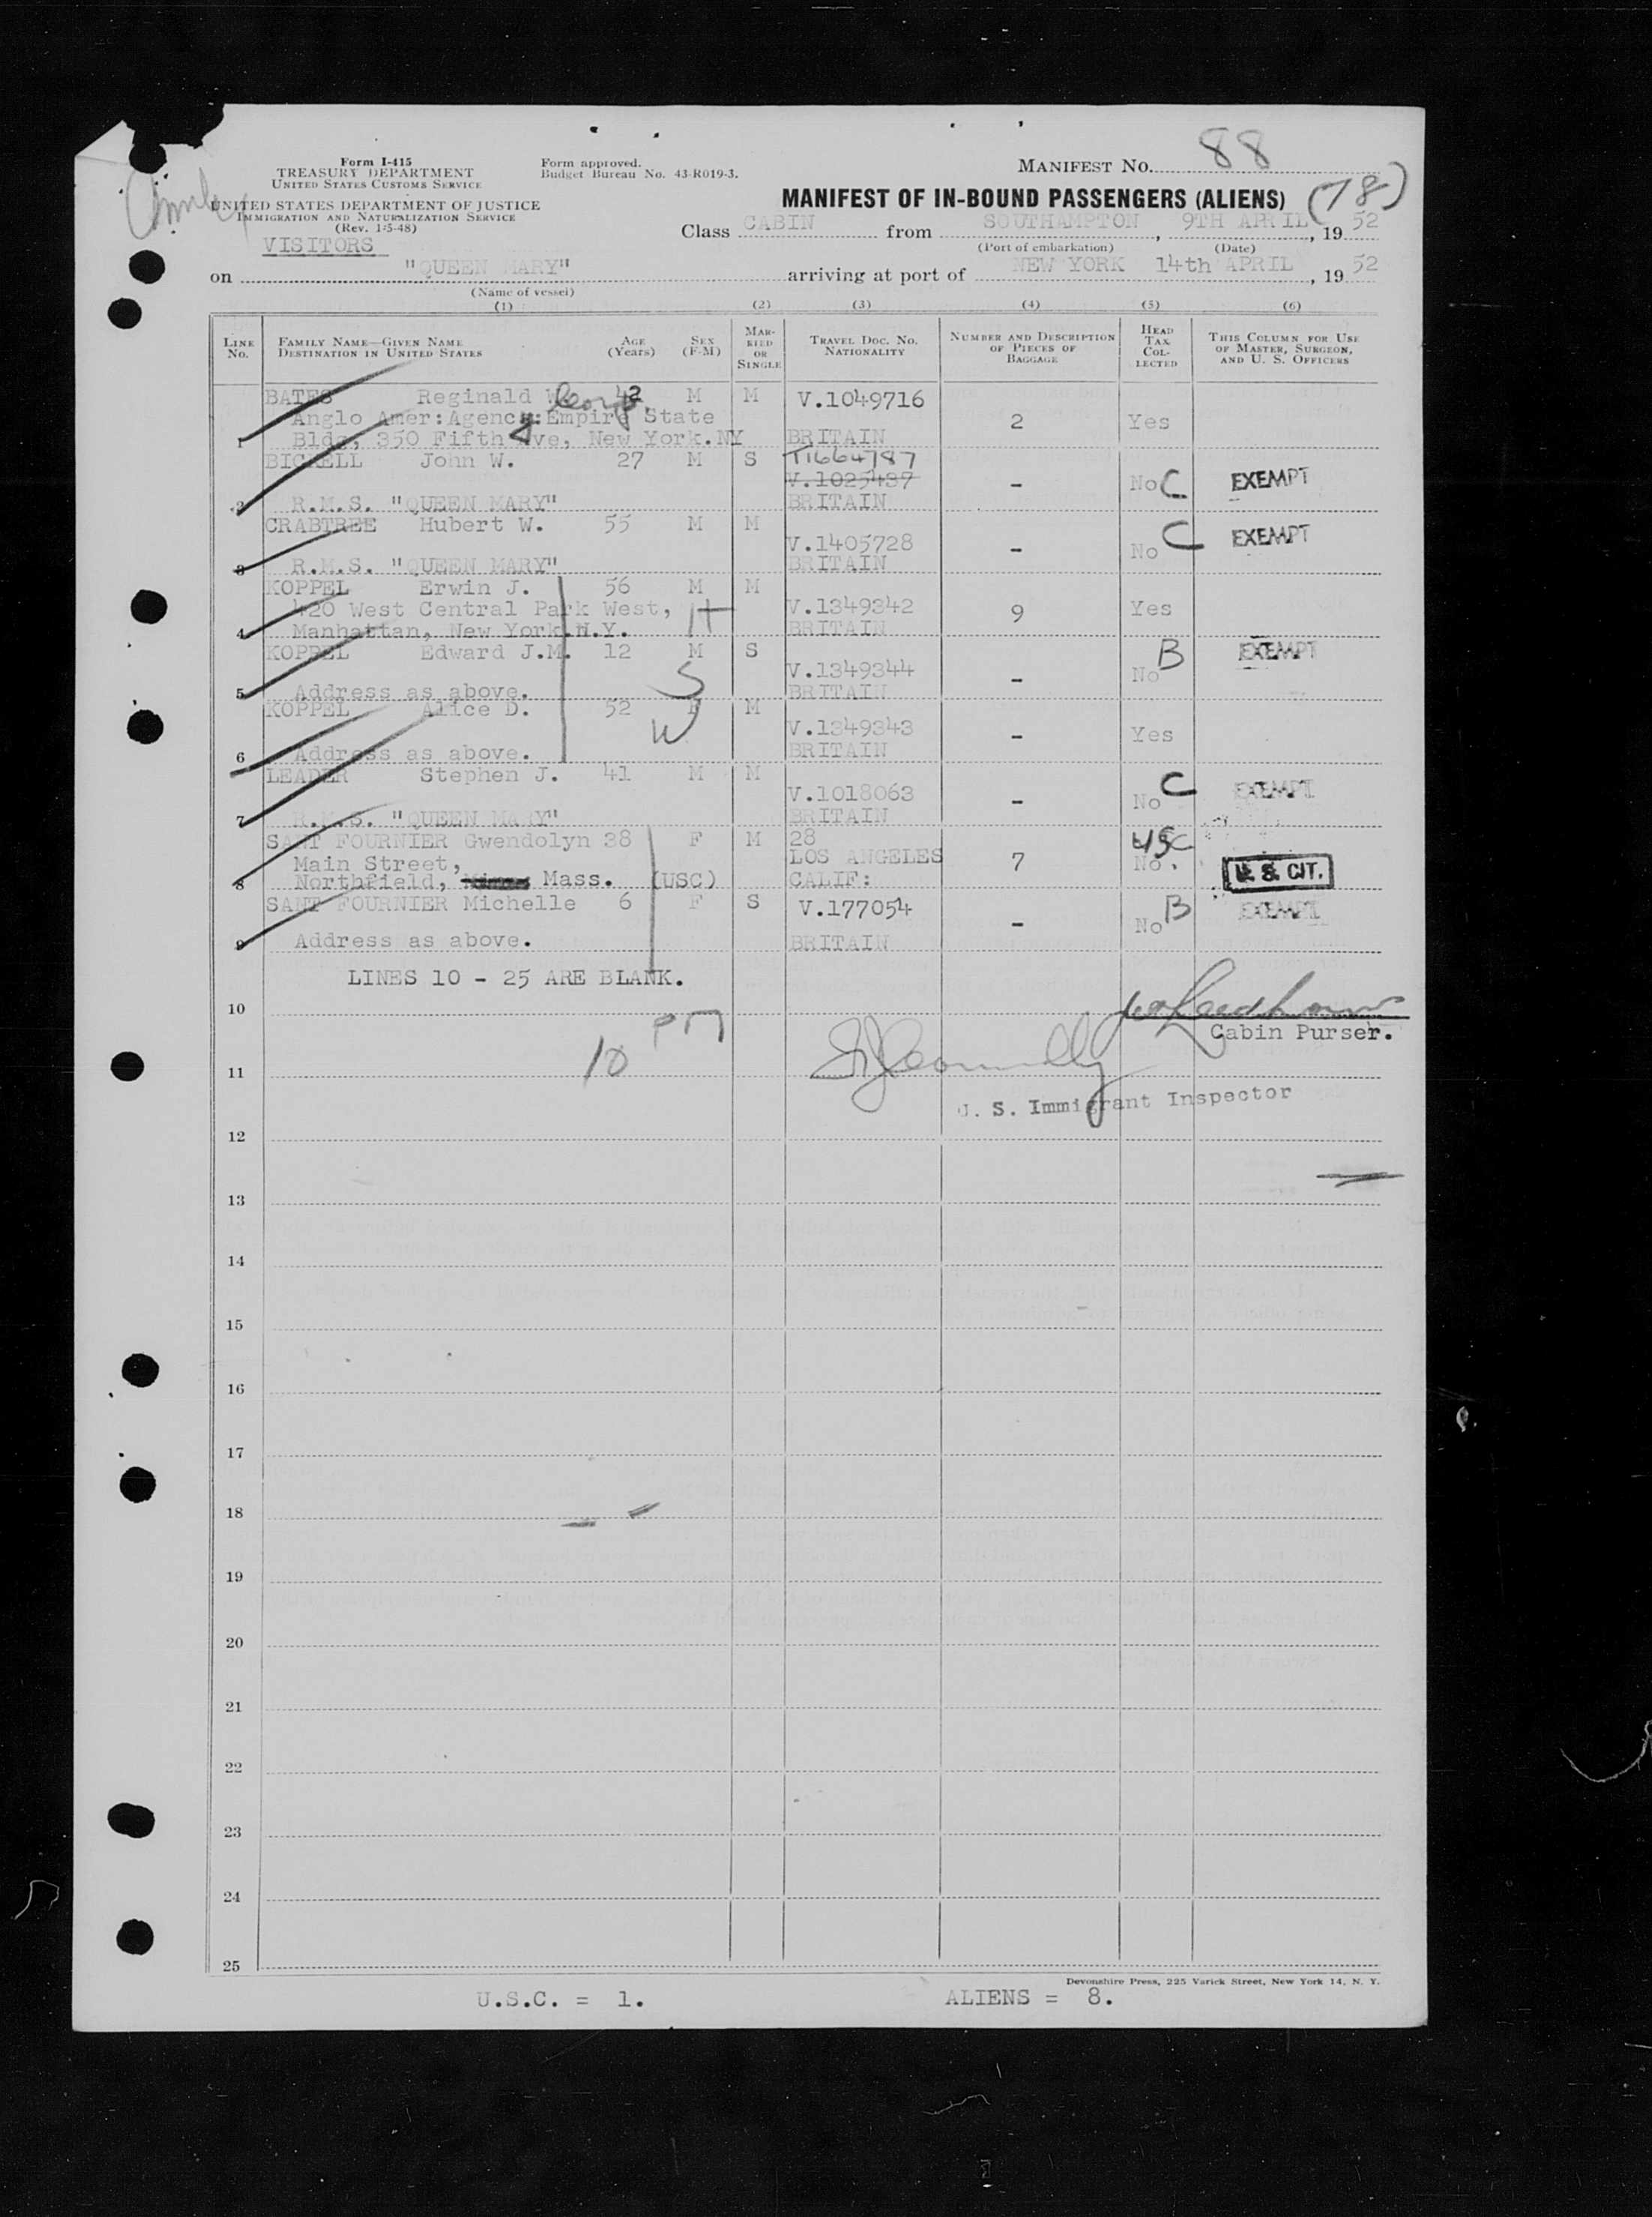 Form I-415
TREASURY DEPARTMENT
UNITED STATES CUSTOMS SERVICE
UNITED STATES DEPARTMENT OF JUSTICE
IMMIGRATION AND NATURALIZATION SERVICE
(Rev. 1-5-48)
Form approved.
Budget Bureau No. 43-R019-3.
MANIFEST No. 88
MANIFEST OF IN-BOUND PASSENGERS (ALIENS) (78)
VISITORS
Class CABIN from SOUTHAMPTON, 9TH APRIL, 1952
(Port of embarkation) (Date)
on "QUEEN MARY" arriving at port of NEW YORK 14th APRIL, 1952
(Name of vessel)
(1) (2) (3) (4) (5) (6)
LINE No. FAMILY NAME—GIVEN NAME DESTINATION IN UNITED STATES AGE (Years) SEX (F-M) MARRIED OR SINGLE TRAVEL DOC. NO. NATIONALITY NUMBER AND DESCRIPTION OF PIECES OF BAGGAGE HEAD TAX COLLECTED THIS COLUMN FOR USE OF MASTER, SURGEON, AND U. S. OFFICERS
BATES Reginald 42 M M V.1049716
Anglo Amer: Agency: Empire State 2 Yes
1 Bldg, 350 Fifth Ave, New York.NY BRITAIN
BICKELL John W. 27 M S T1664787
V.1025437 - No C EXEMPT
2 R.M.S. "QUEEN MARY" BRITAIN
CRABTREE Hubert W. 55 M M
V.1405728 - No C EXEMPT
3 R.M.S. "QUEEN MARY" BRITAIN
KOPPEL Erwin J. 56 M M
420 West Central Park West, H V.1349342 9 Yes
4 Manhattan, New York.N.Y. BRITAIN
KOPPEL Edward J.M. 12 M S B EXEMPT
V.1349344 - No
5 Address as above. S BRITAIN
KOPPEL Alice D. 52 F M
W V.1349343 - Yes
6 Address as above. BRITAIN
LEADER Stephen J. 41 M M
V.1018063 - No C EXEMPT
7 R.M.S. "QUEEN MARY" BRITAIN
SANT FOURNIER Gwendolyn 38 F M 28 USC
Main Street, LOS ANGELES 7 No.
8 Northfield, Mass. (USC) CALIF: U. S. CIT.
SANT FOURNIER Michelle 6 F S V.177054 - No B EXEMPT
9 Address as above. BRITAIN
LINES 10 - 25 ARE BLANK.
10
Cabin Purser.
10 PM
11
U. S. Immigrant Inspector
12
13
14
15
16
17
18
19
20
21
22
23
24
25
Devonshire Press, 225 Varick Street, New York 14, N. Y.
U.S.C. = 1. ALIENS = 8.